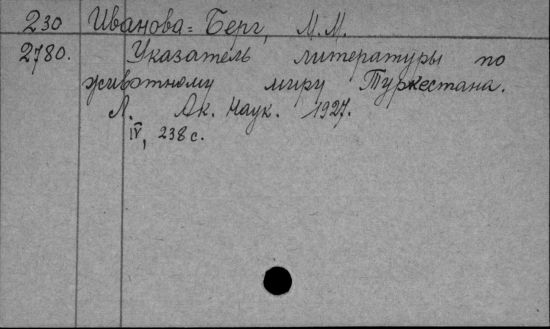 230 Иванова=Берг, М.М.
2780. Указатель литературы по
животному миру Туркестана.
Л. Ак. Наук. 1927.
IV, 238 с.